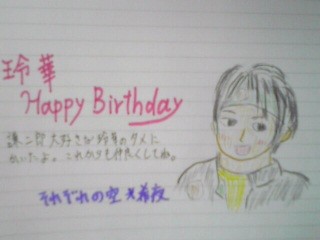 玲華
Happy Birthday
謙二郎大好きな玲華のタメに
かいたよ。これからも仲良くしてね。
それぞれの空